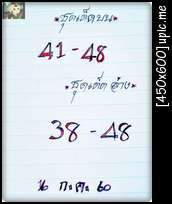 *ชุดเด็ดบน*
41 - 48
*ชุดเด็ด ล่าง*
38 - 48
16 ก.ค. 60
[450x600] upic.me